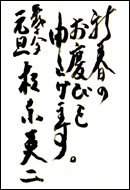 新春の
お慶びを
申し上げます。
元旦
英二